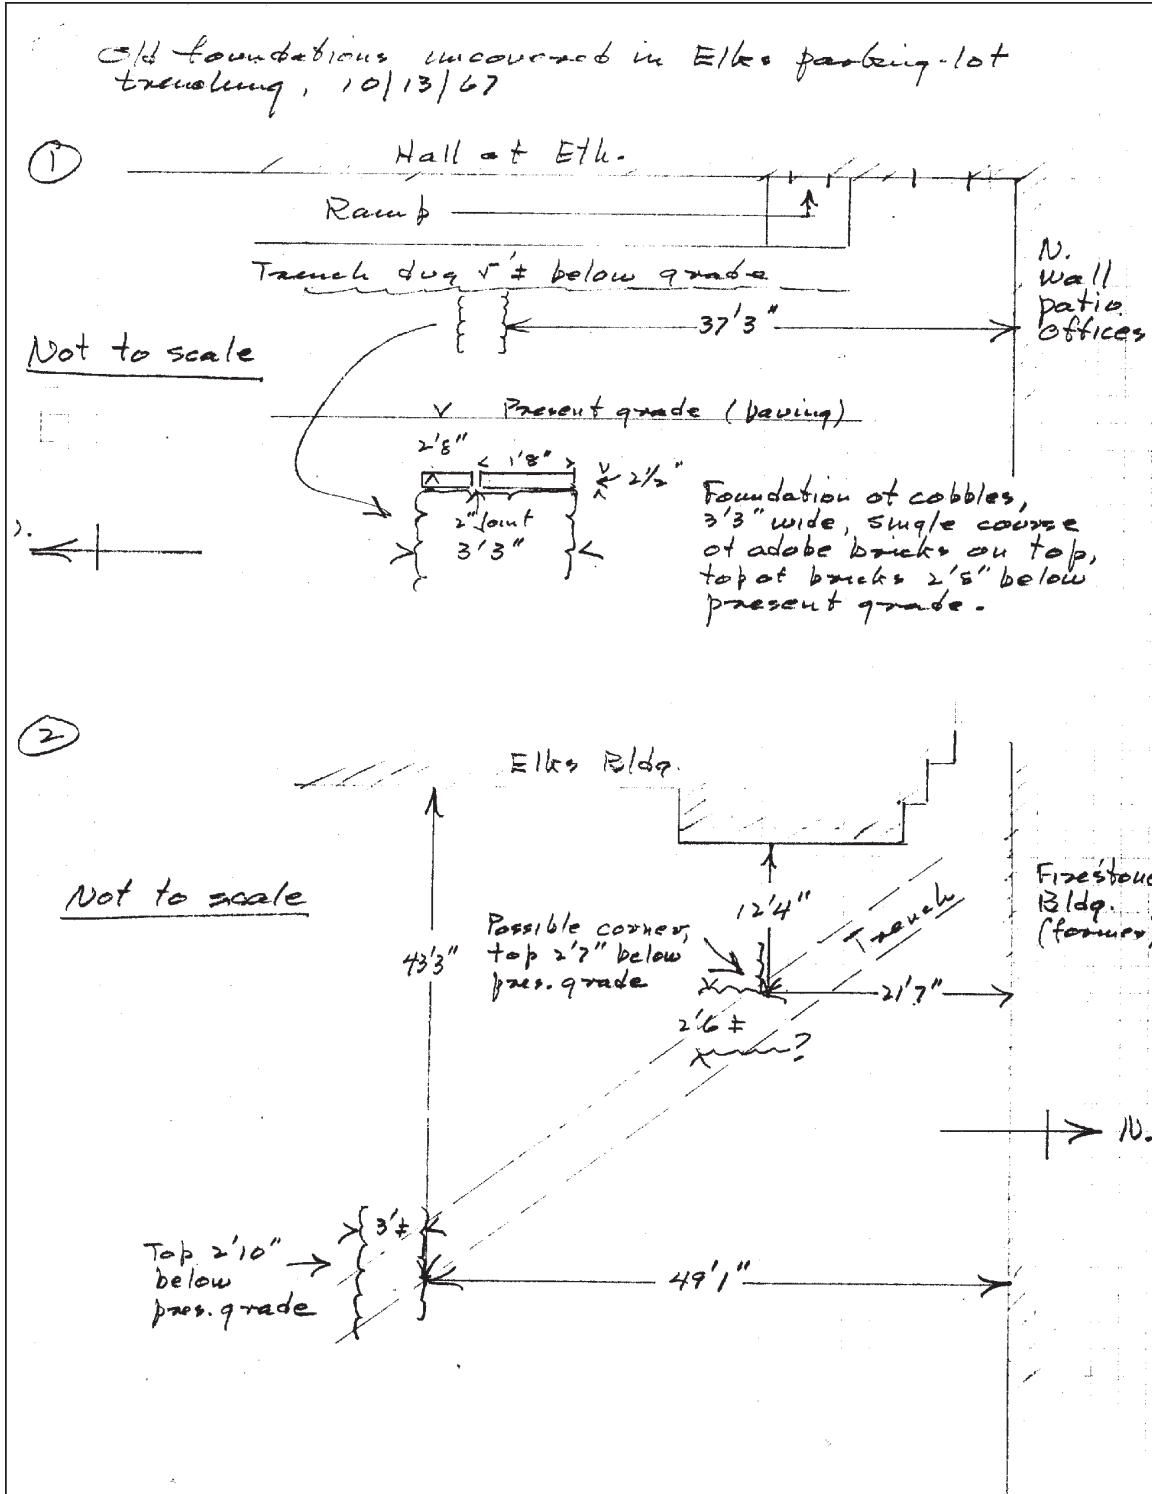 Old foundations uncovered in Elks parking-lot
trenching, 10/13/67
1
Hall at Eth.
Ramp
Trench dug 5'± below grade
37'3"
N.
Wall
patio
offices
Not to scale
Present grade (paving)
2'8"
1'8"
2½"
2" Joint
3'3"
Foundation of cobbles,
3'3" wide, single course
of adobe bricks on top,
top of bricks 2'8" below
present grade.
2
Elks Bldg.
Not to scale
43'3"
12'4"
Possible corner,
top 2'7" below
pres. grade
Trench
Firestone
Bldg.
(former)
21'7"
2'6±
?
N.
3'±
Top 2'10"
below
pres. grade
49'1"